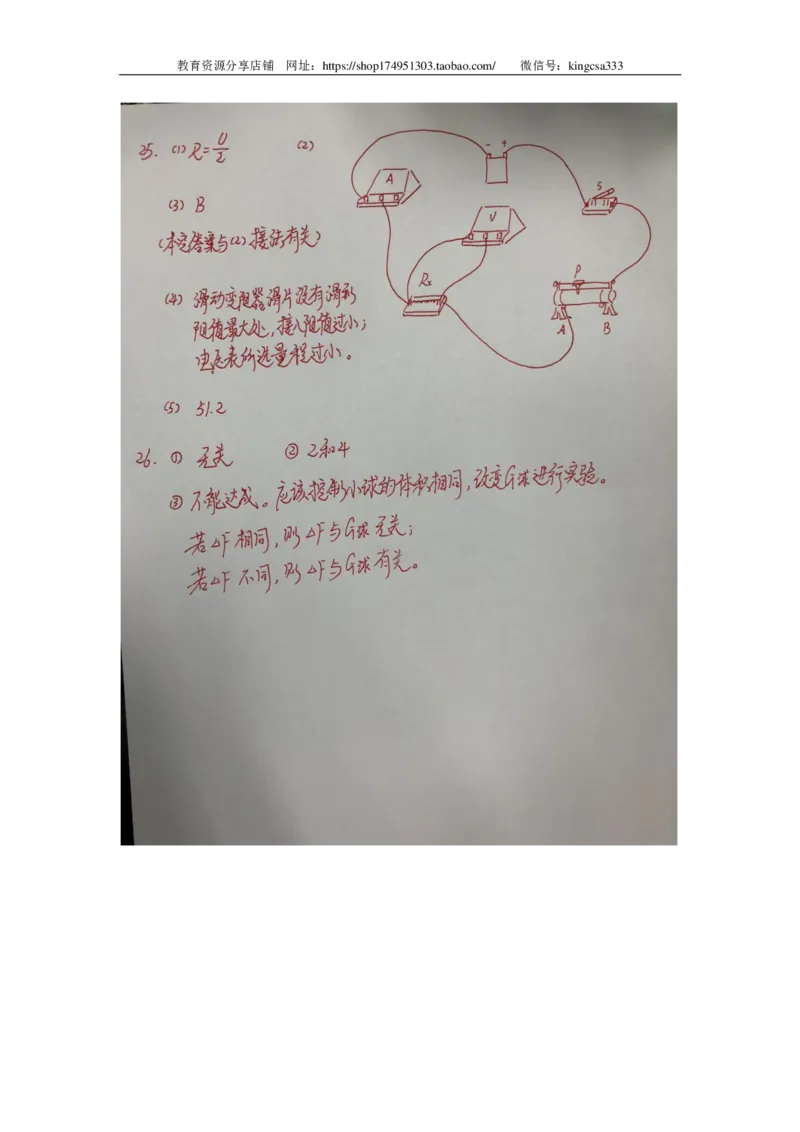 教育资源分享店铺 网址：https://shop174951303.taobao.com/ 微信号：kingcsa333
25. (1) R=U/I (2)
- +
A
S
V
(3) B
(本空答案与(2)接法有关)
Rx
P
A B
(4) 滑动变阻器滑片没有滑到
阻值最大处，接入阻值过小；
电压表所选量程过小。
(5) 51.2
26. ① 无关 ② 2和4
③ 不能达成。应该控制小球的体积相同，改变G球进行实验。
若△F相同，则△F与G球无关；
若△F不同，则△F与G球有关。